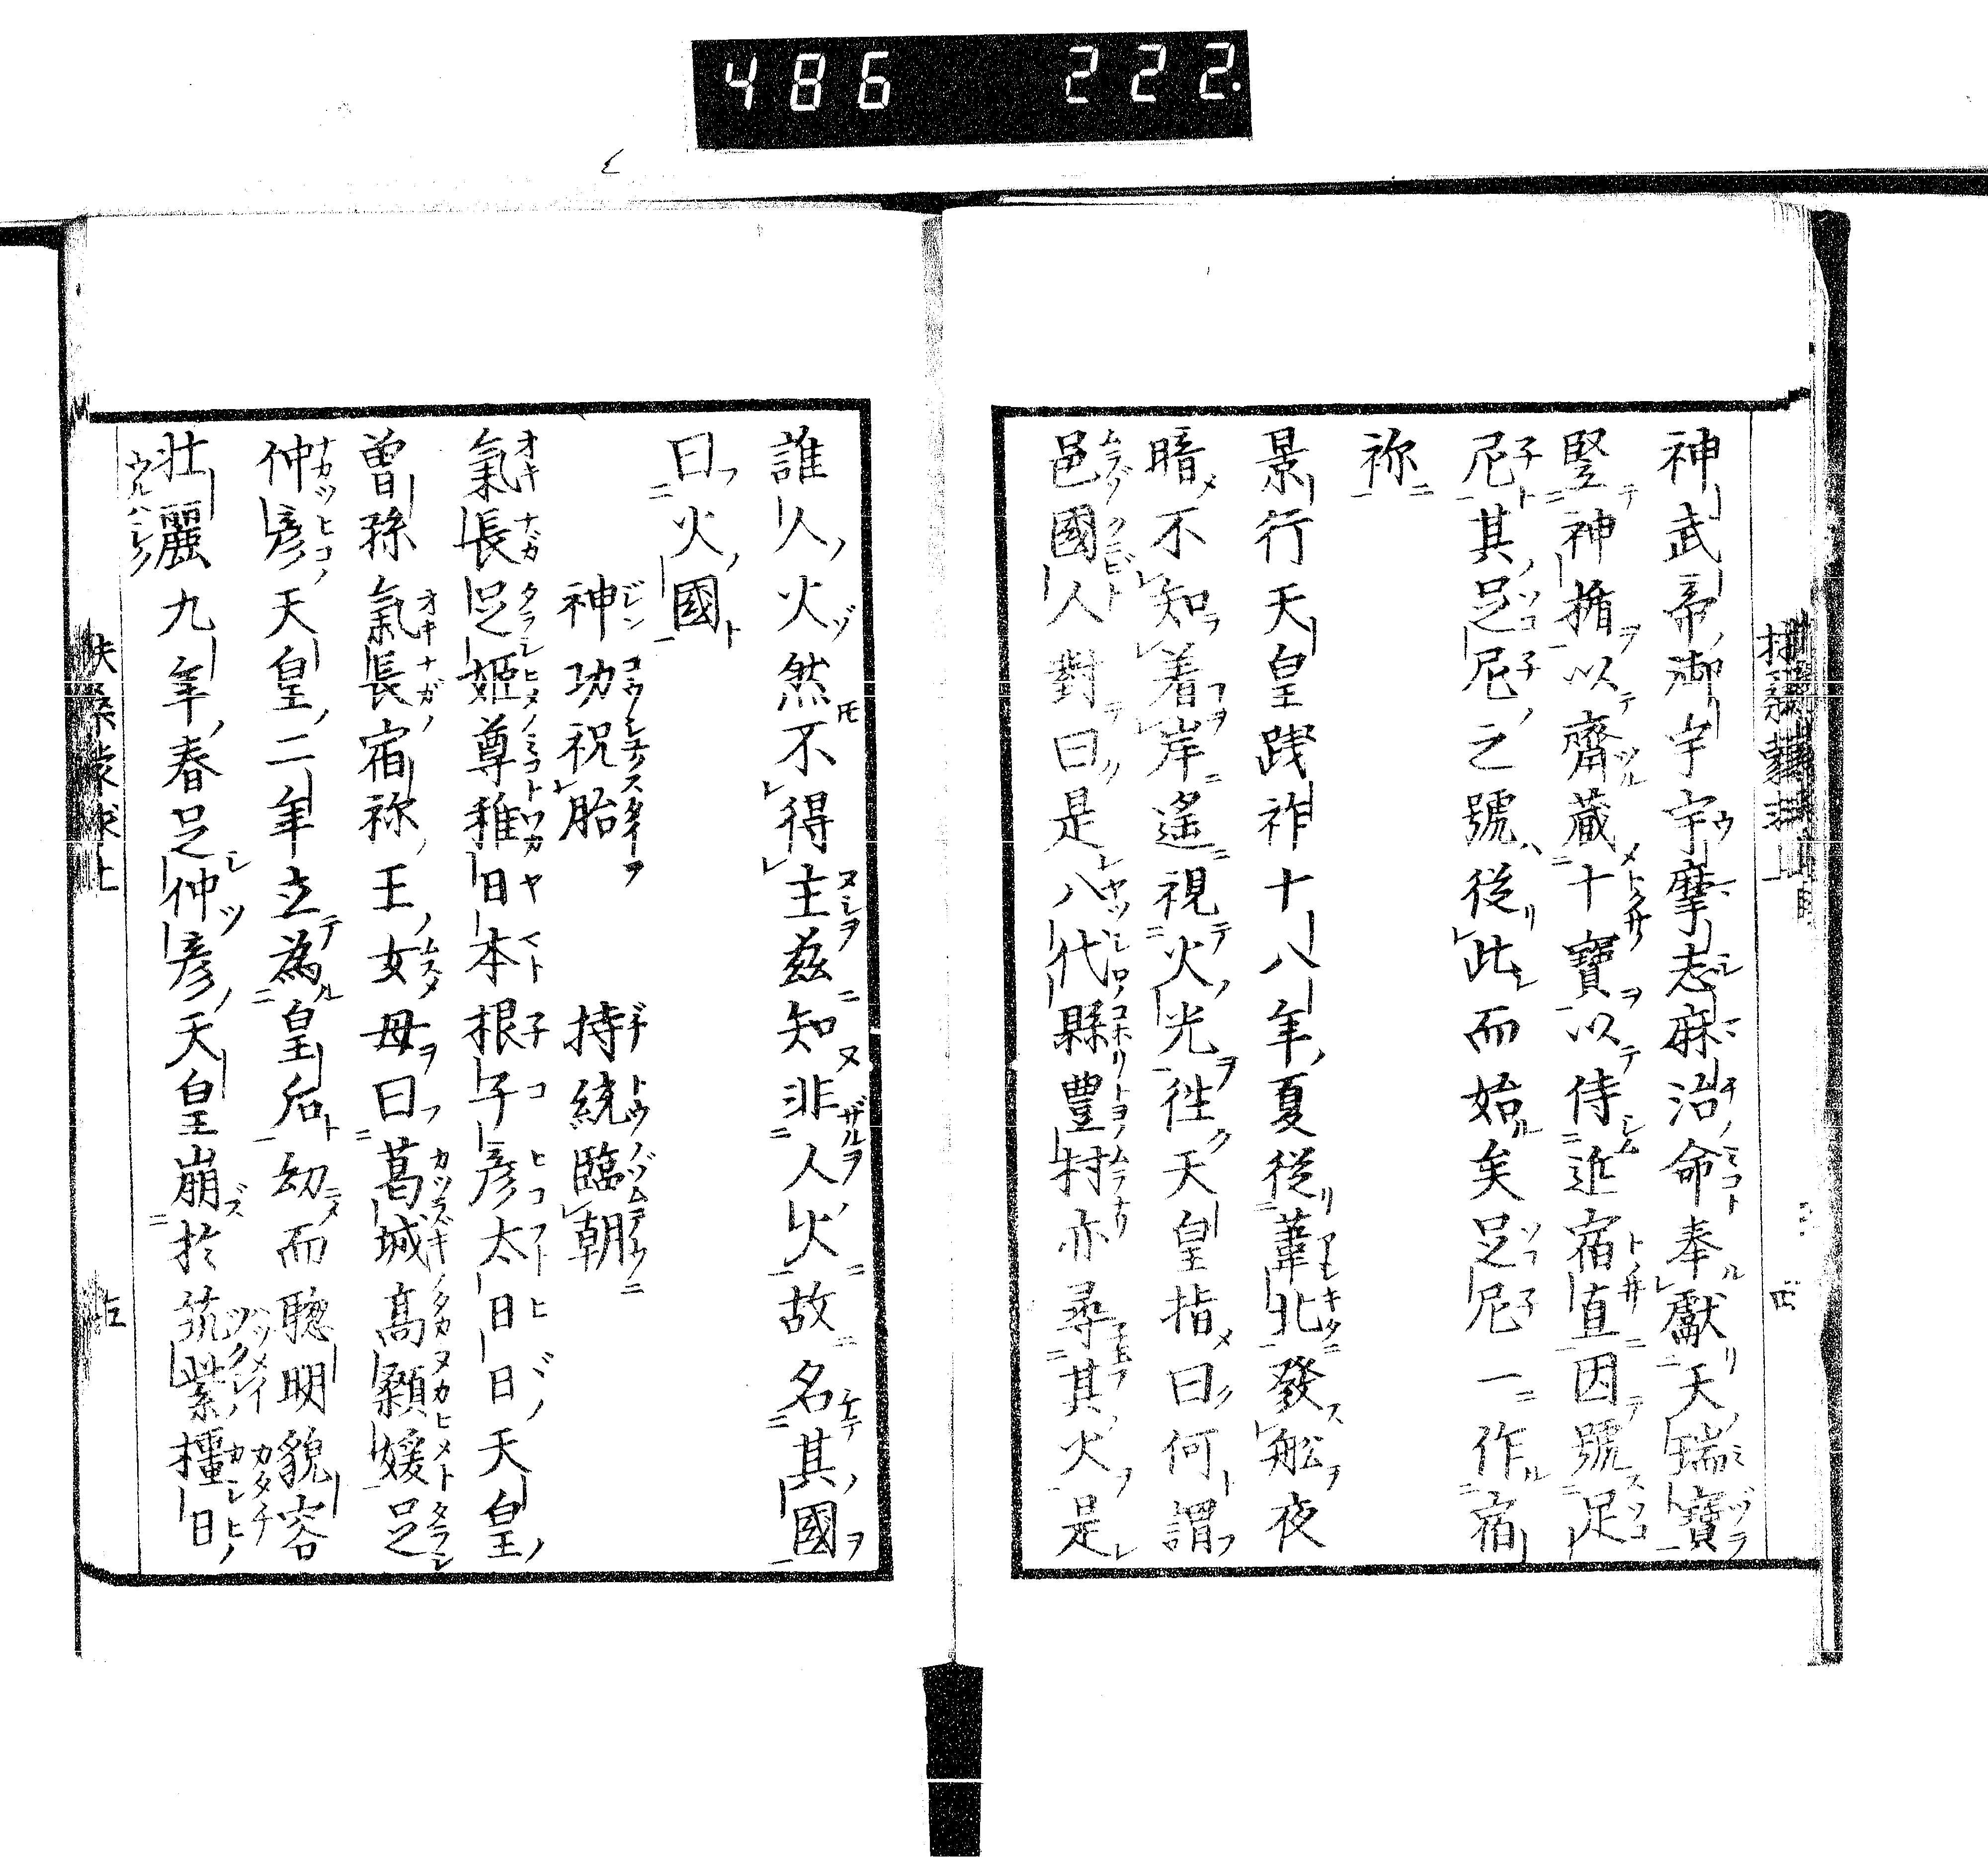 486 222.
神武帝御宇宇摩志麻治命奉獻天瑞寶
竪神楯以齋蔵十寶以侍近宿直因號足
尼其足尼之號從此而始矣足尼一作宿
祢
景行天皇踐祚十八年夏從葦北發舩夜
暗不知着岸遙視火光徃天皇指曰何謂
邑國人對曰是八代縣豊村亦尋其火是
誰人火然不得主茲知非人火故名其國
曰火國
神功祝胎 持統臨朝
氣長足姬尊稚日本根子彥太日日天皇
曽孫氣長宿祢王女母曰葛城高顙媛足
仲彥天皇二年立為皇后幼而聰明貌容
壮麗九年春足仲彥天皇崩於筑紫橿日
扶桑蒙求上